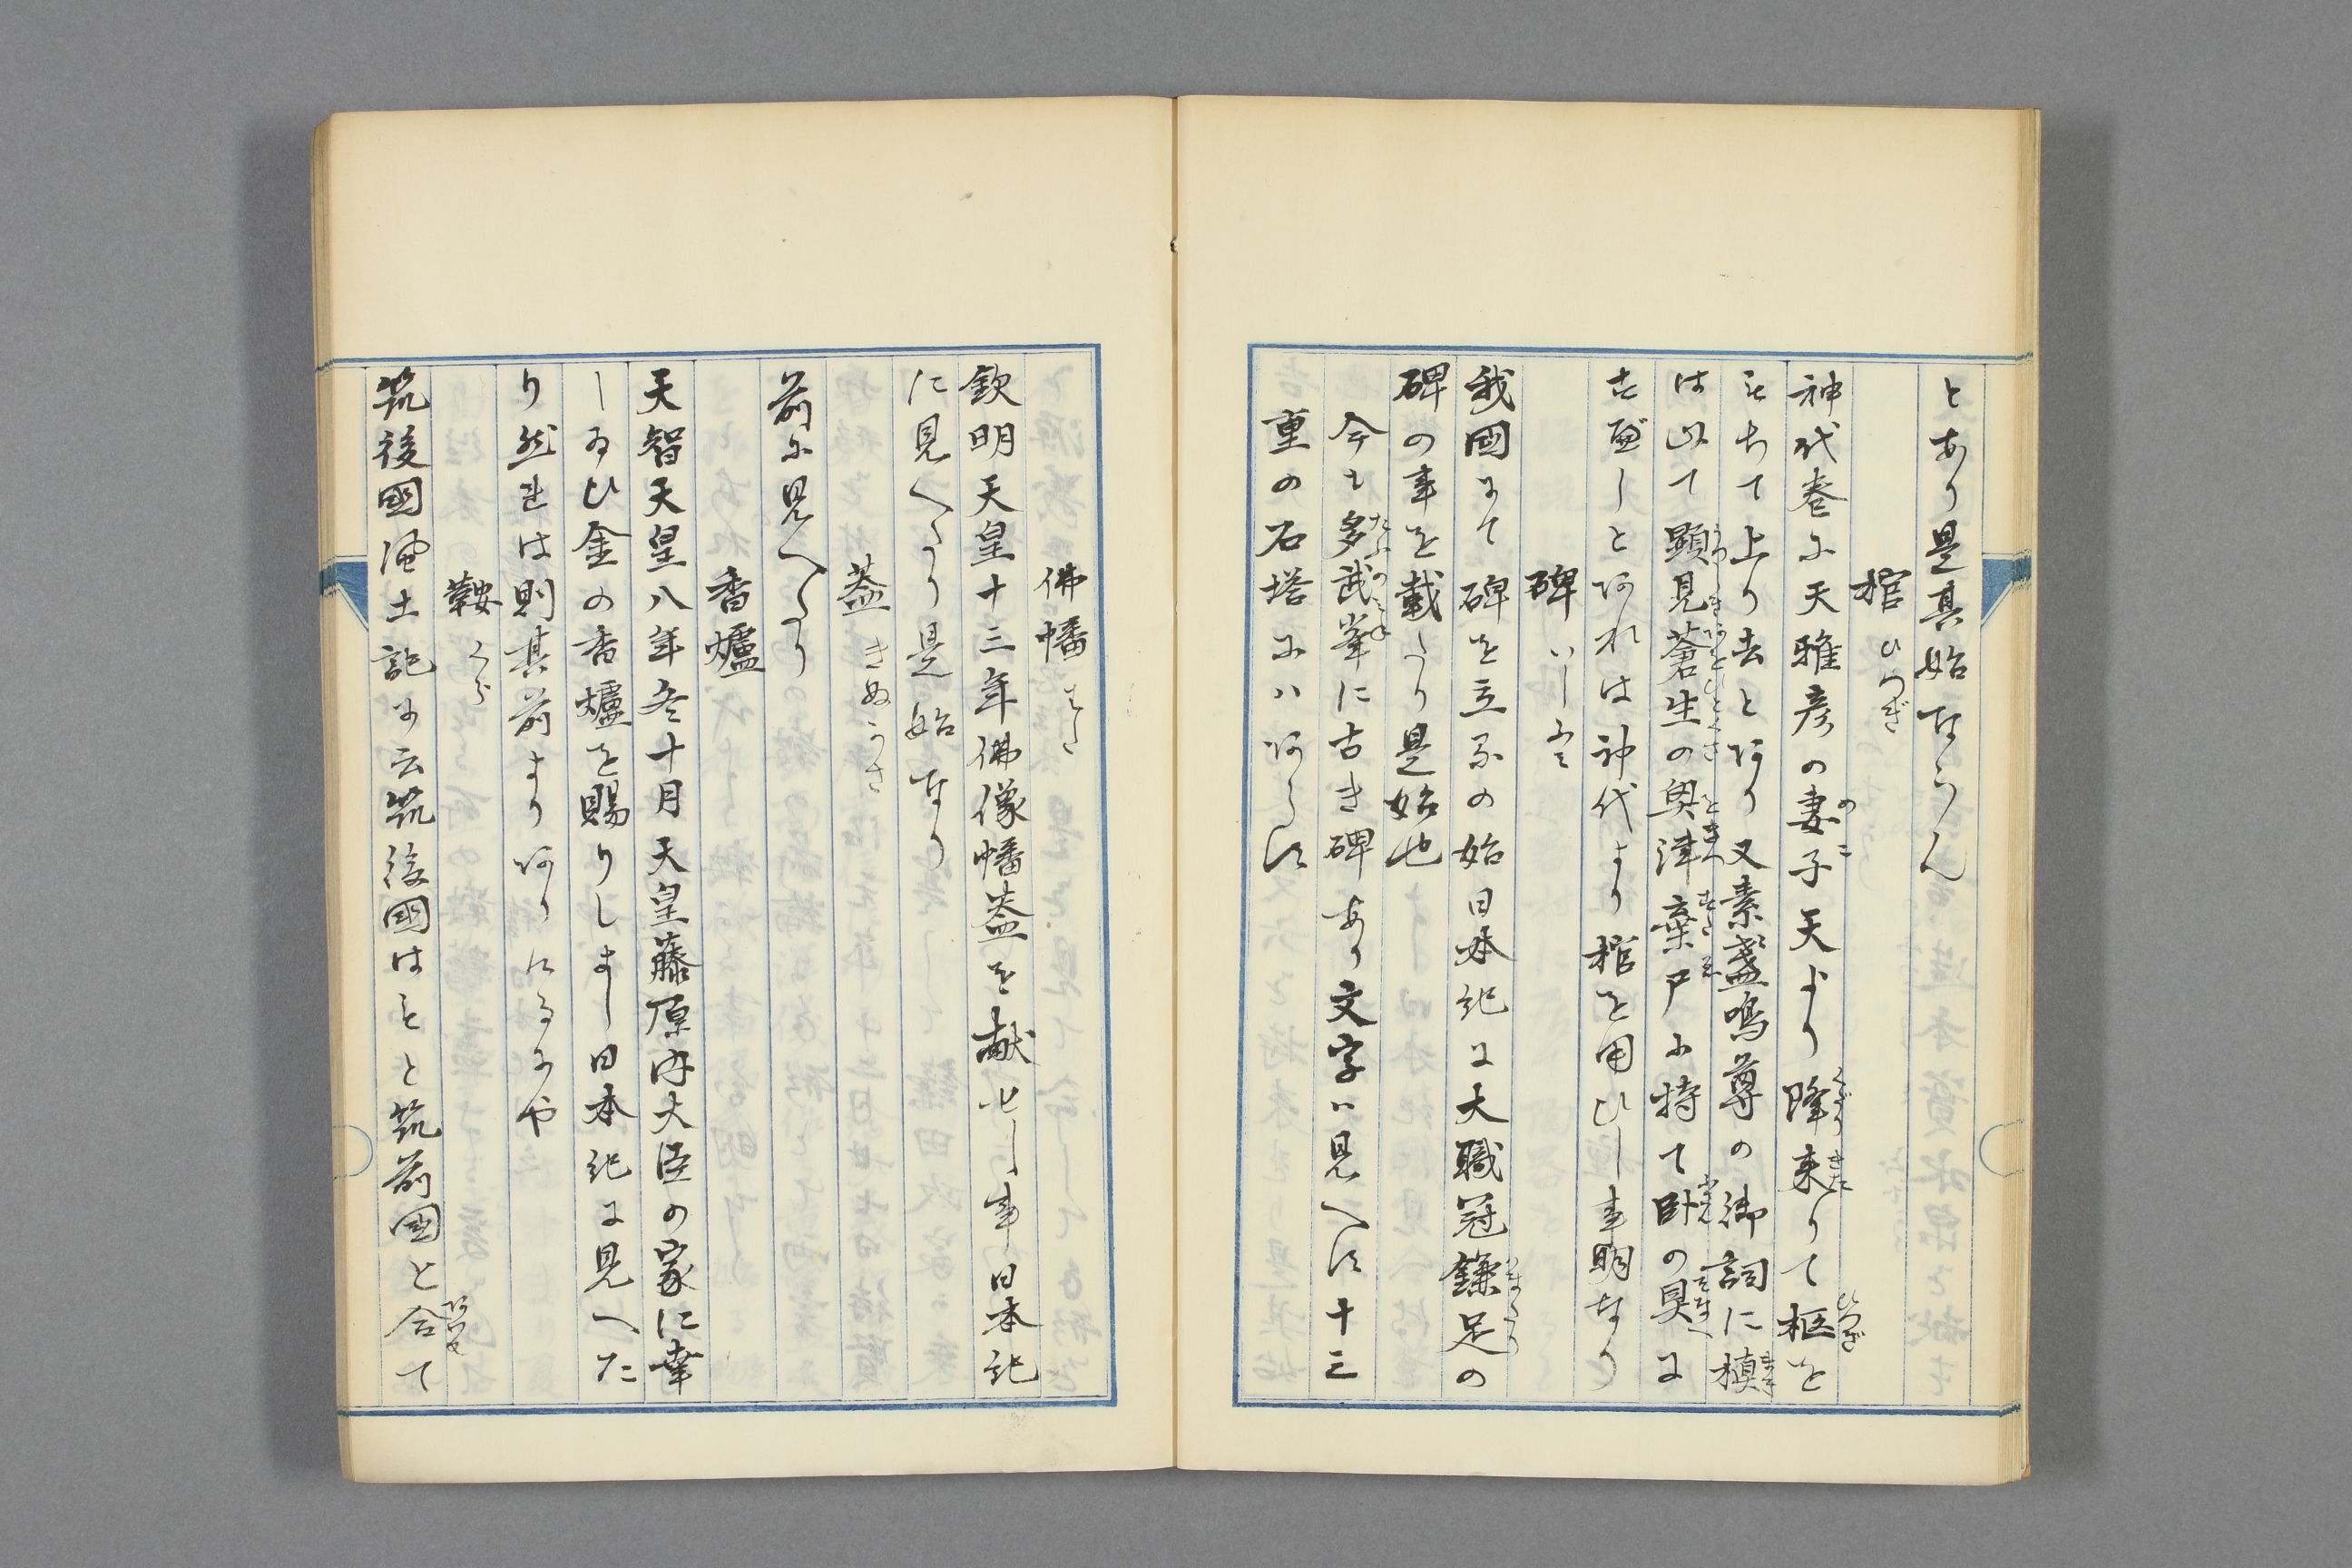 とあり是其始ならん
棺 ひつぎ
神代巻に天雅彦の妻子天より降来りて柩を
もちて上り去とあり又素盞嗚尊の御詞に槙
は以て顕見蒼生の奥津棄戸に持て臥の具に
すべしとあれは神代より棺を用ひし事明なり
碑 いしぶミ
我国にて碑を立るの始日本紀に大職冠鎌足の
碑の事を載たり是始也
今も多武峯に古き碑あり文字ハ見へす十三
重の石塔にハあらす
佛幡 はた
欽明天皇十三年佛像幡葢を献せし事日本紀
に見へたり是始なり
葢 きぬかさ
前に見へたり
香爐
天智天皇八年冬十月天皇藤原内大臣の家に幸
しゐひ金の香爐を賜りしよし日本紀に見へた
り然れは則其前よりありけるにや
鞍 くら
筑後國風土記に云筑後國はもと筑前國と合て